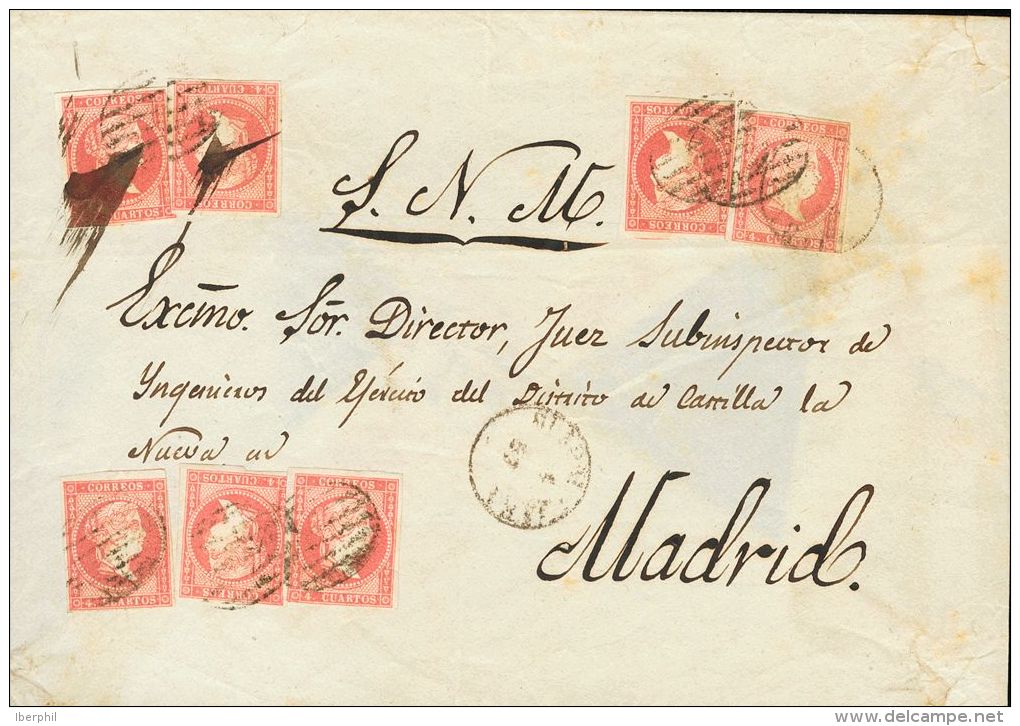 CORREOS
4 CUARTOS
4 CUARTOS
CUARTOS
CORREOS
CORREOS
4 CU
S. N. M.
Excmo. Sōr. Director, Juez Subinspector de
Yngenieros del Ejército del Distrito de Castilla la
Nueva en
CORREOS
4 CUARTOS
4 CUARTOS
CORREOS
CORREOS
4 CUARTOS
Madrid.
Iberphil
www.delcampe.net